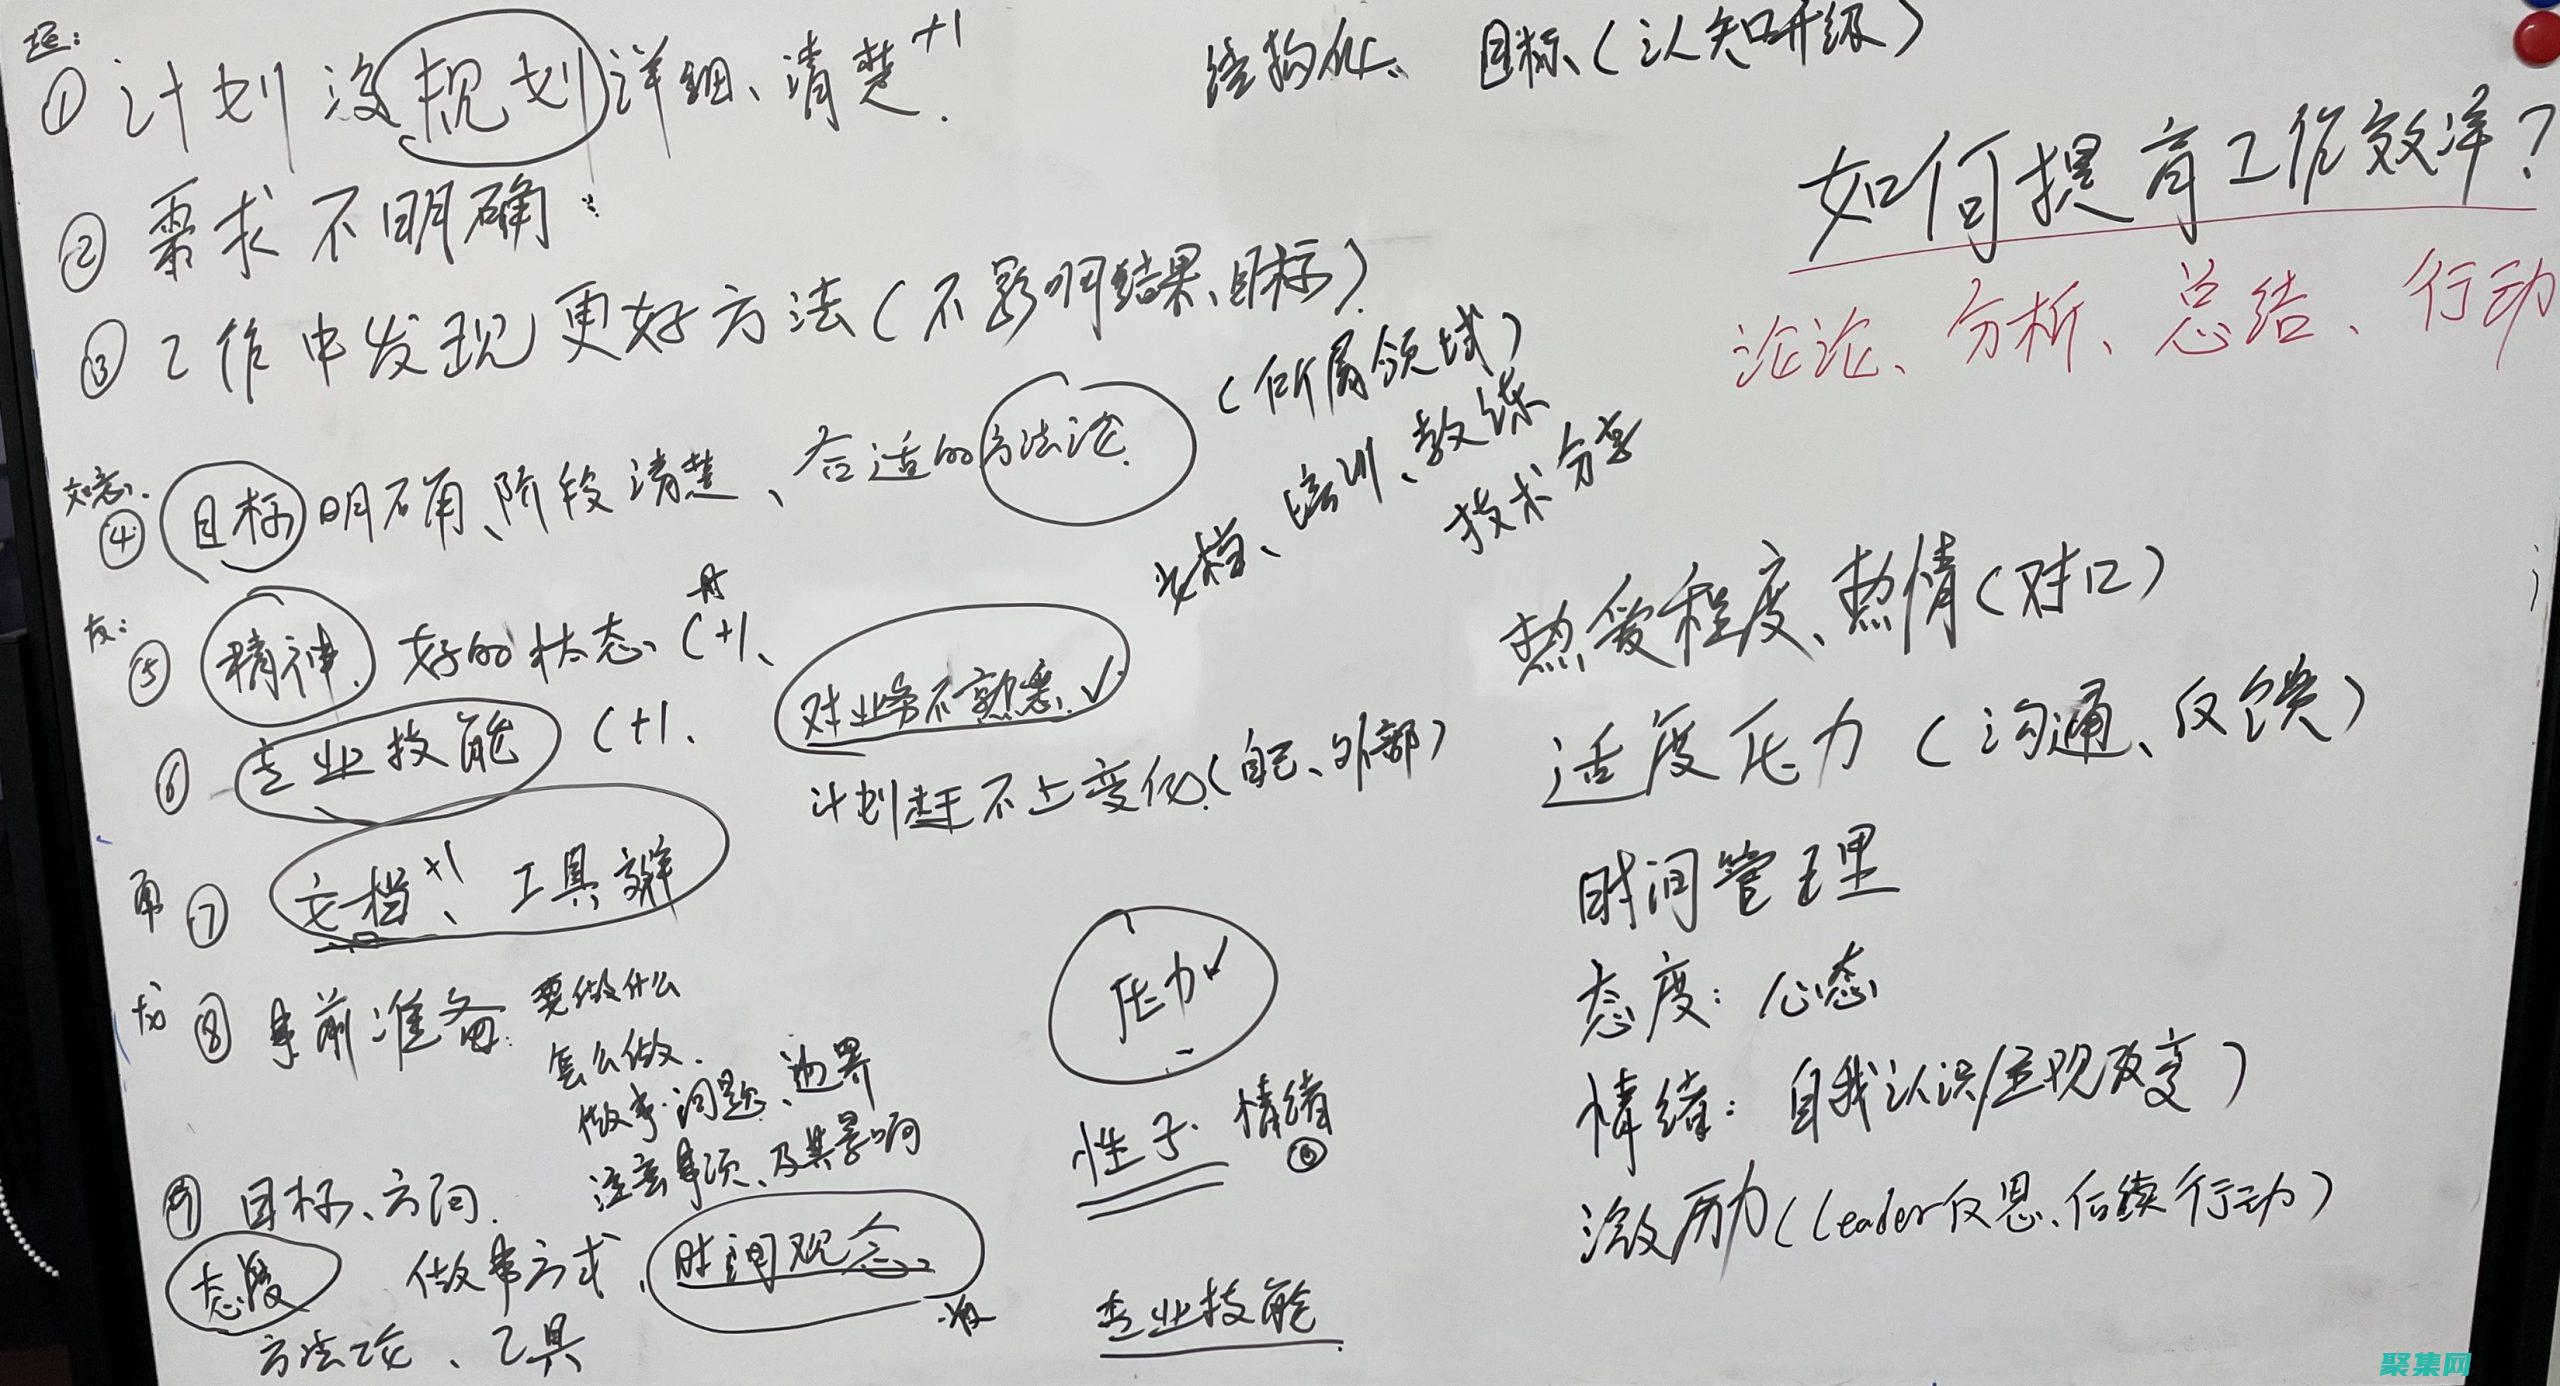 ① 计划没规划详细、清楚. +1
② 需求不明确.
③ 工作中发现更好方法(不影响结果、目标)
④ 目标明确、阶段清楚、合适的方法论.
(所属领域)
文档、培训、教练
技术分享
⑤ 精神. 好的状态、(+1、
⑥ 专业技能 (+1、
对业务不熟悉. ✓
计划赶不上变化.(自己、外部)
⑦ 文档+1、工具
⑧ 事前准备: 要做什么
怎么做.
做事.问题、边界
注意事项、及其影响
⑨ 目标、方向.
态度 做事方式、时间观念、
方法论、工具
压力✓
性子. 情绪
专业技能
结构化、 目标(认知升级)
如何提高工作效率?
讨论、分析、总结、行动
热爱程度、热情(对口)
适度压力(沟通、反馈)
时间管理
态度: 心态
情绪: 自我认识/主观改变)
激励(Leader反思、后续行动)
聚集网